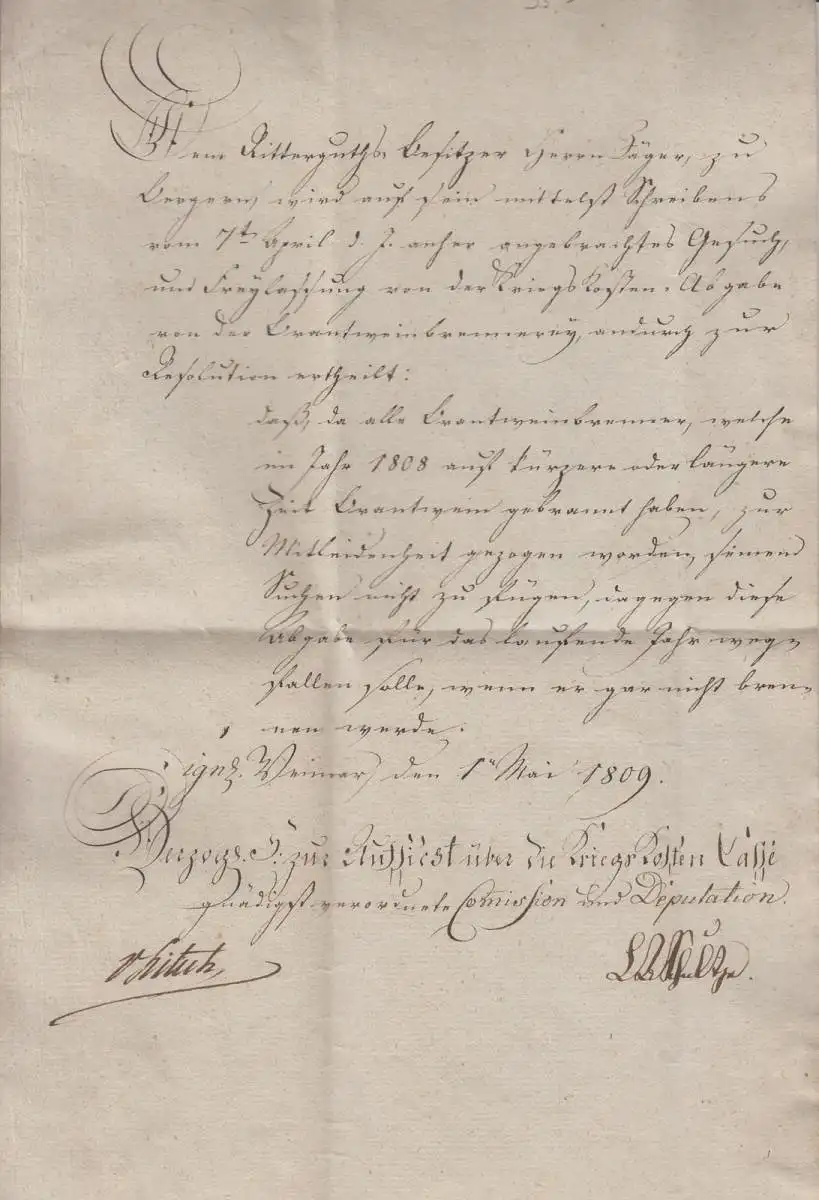 Dem Ritterguths Besitzer Herrn Jäger, zu
wird auf sein mittelst Schreibens
vom 7ten April d. J. anher angebrachtes Gesuch,
um Freylassung von der Kriegs Kosten-Abgabe
von der Brantweinbrennerey, andurch zur
Resolution ertheilt:
daß, da alle Brantweinbrenner, welche
im Jahr 1808 auf kürzere oder längere
Zeit Brantwein gebrannt haben, zur
Mitleidenheit gezogen worden, seinem
Suchen nicht zu fügen, dagegen diese
Abgabe für das laufende Jahr weg-
fallen solle, wenn er gar nicht bren-
nen werde.
Signt. Weimar den 1n Mai 1809.
Herzogl. S. zur Aufsicht über die Kriegs Kosten Casse
gnädigst verordnete Comission und Deputation.